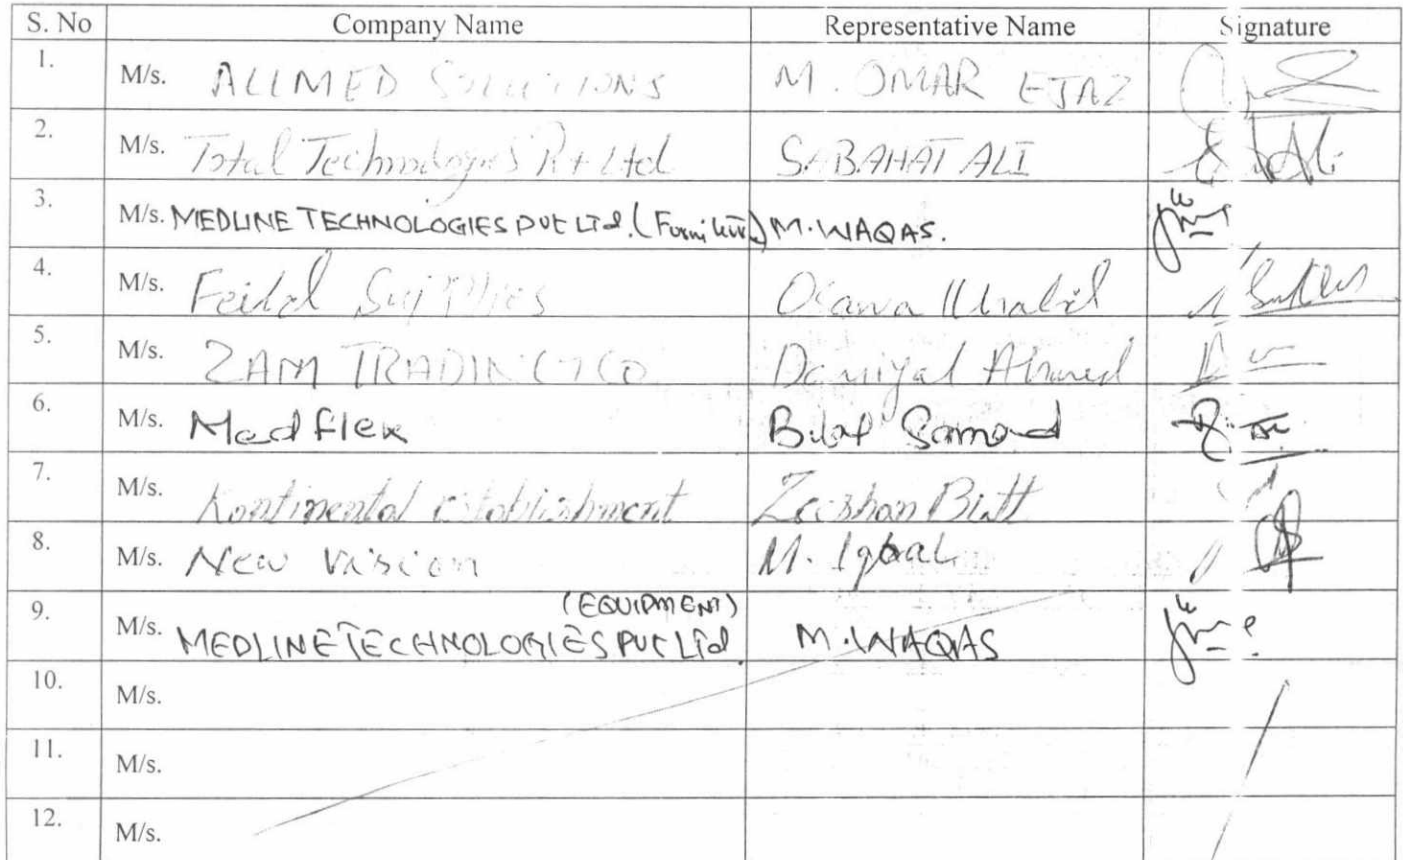 S. No Company Name Representative Name Signature
1. M/s. ALLMED SOLUTIONS M. OMAR EJAZ
2. M/s. Total Technologies Pvt Ltd SABAHAT ALI
3. M/s. MEDLINE TECHNOLOGIES PVT LTd. (Furniture) M. WAQAS.
4. M/s. Supplies
5. M/s. ZAM TRADING CO Daniyal Ahmed
6. M/s. Medflex Bilal Samad
7. M/s. Kontinental establishment Zeeshan Butt
8. M/s. New Vision M. Iqbal
(EQUIPMENT)
9. M/s. MEDLINE TECHNOLOGIES PVT LTd. M. WAQAS
10. M/s.
11. M/s.
12. M/s.